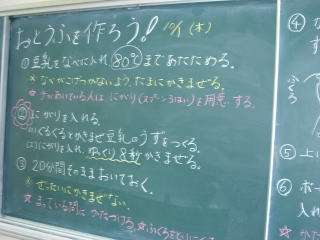 おとうふを作ろう! 10/1 (木)
① 豆乳をなべに入れ 80℃ まであたためる。
★ なべがこげつかないよう、たまにかきまぜる。
★ 手があいている人は にがり(スプーン3はい)を用意する。
② にがりを入れる。
(1)ぐるぐるとかきまぜ豆乳のうずをつくる。
(2)にがりを入れ、ゆっくり8秒かきまぜる。
③ 20分間そのままおいておく。
★ ぜったいにかきまぜない。
★ まっている間に かたづける。
④
⑤ 上
⑥ ボー
入れ